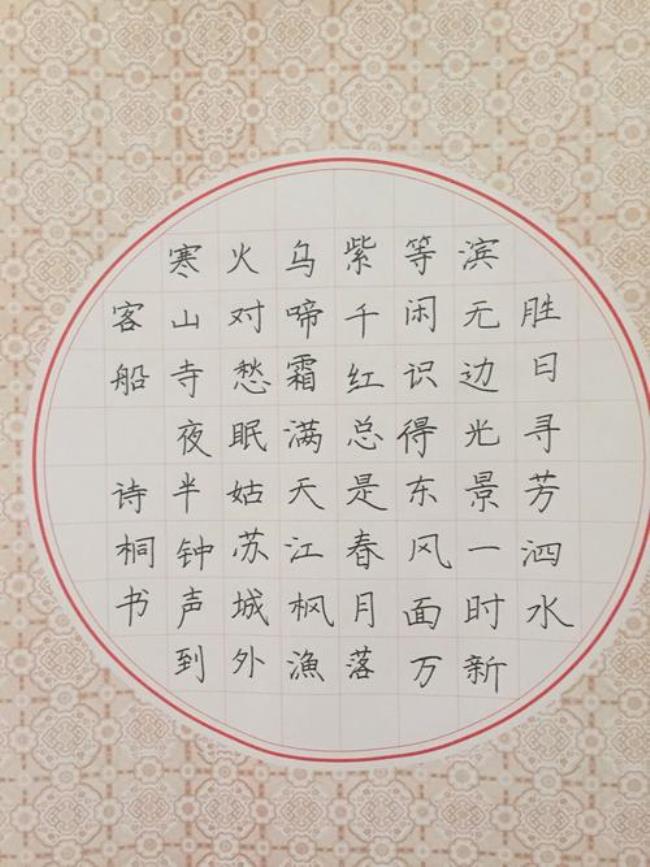 胜日寻芳泗水
滨无边光景一时新
等闲识得东风面万
紫千红总是春月落
乌啼霜满天江枫漁
火对愁眠姑苏城外
寒山寺夜半钟声到
客船 诗桐书